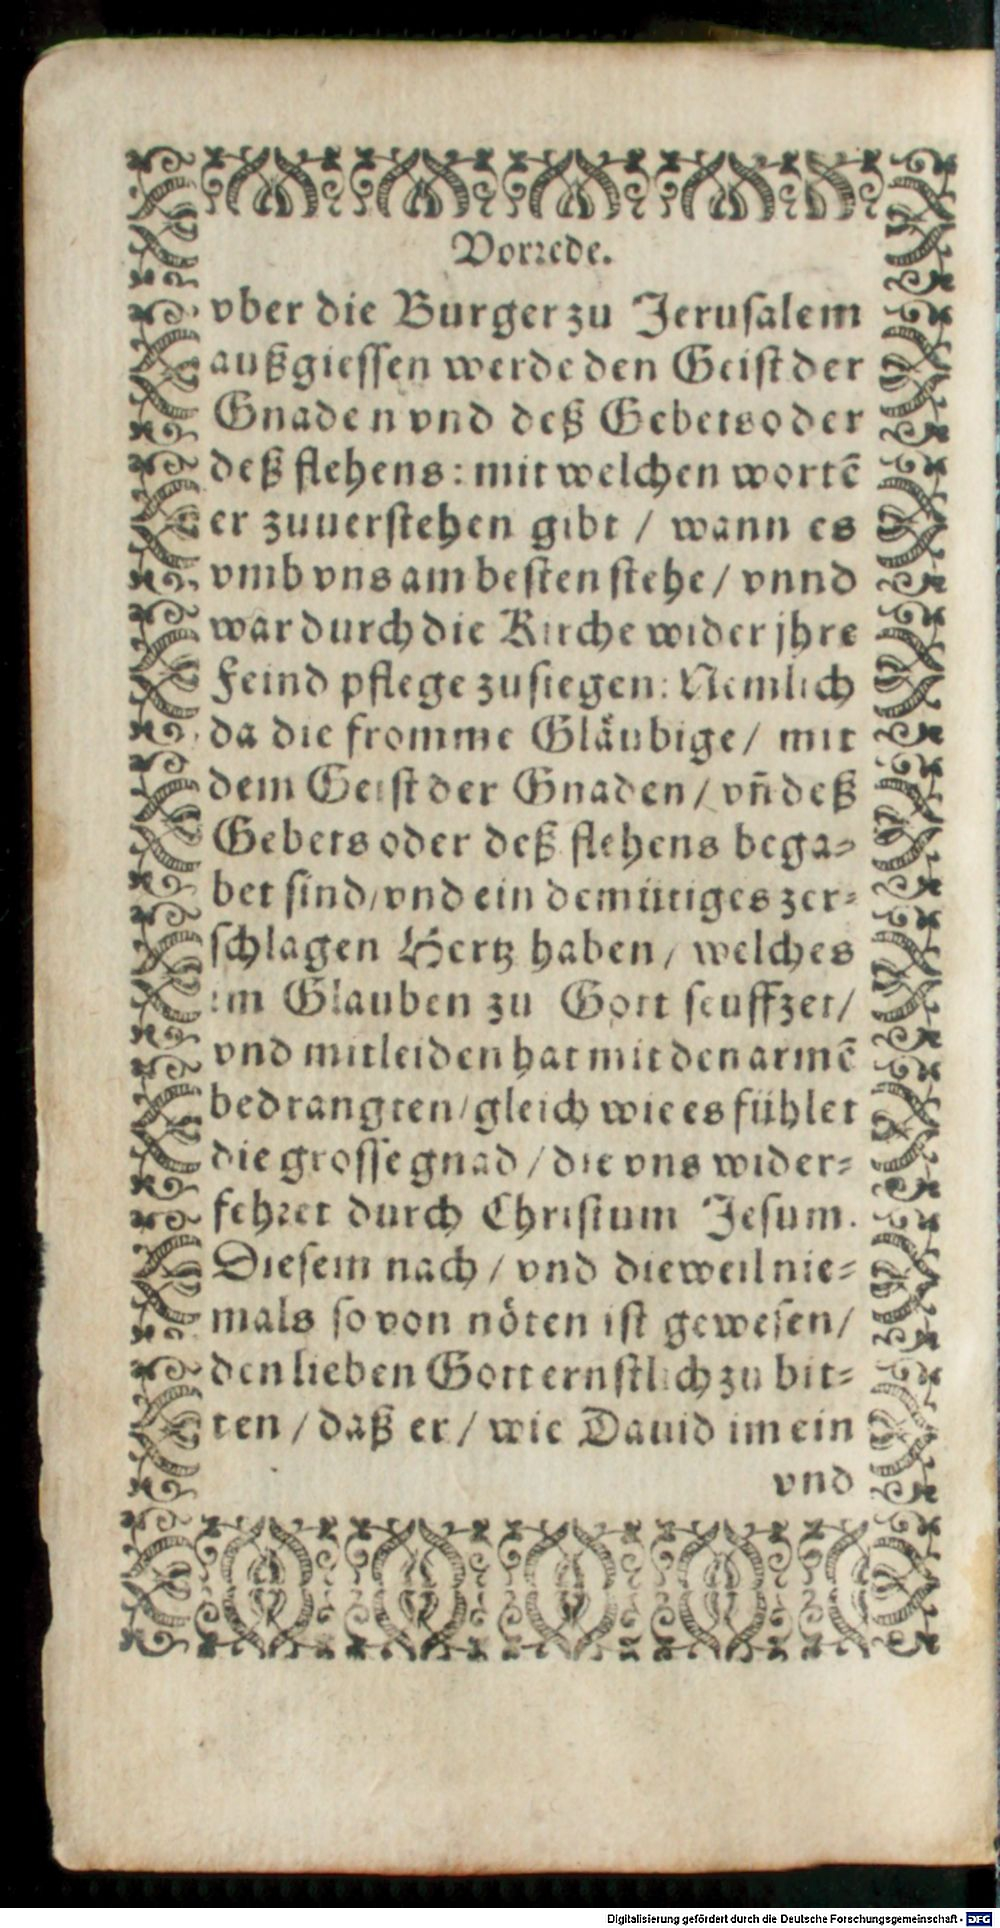 Vorꝛede.
vber die Burger zu Jerusalem
außgiessen werde den Geist der
Gnaden vnd deß Gebets oder
deß flehens: mit welchen wortē
er zuuerstehen gibt / wann es
vmb vns am besten stehe / vnnd
war durch die Kirche wider jhre
Feind pflege zusiegen: Nemlich
da die fromme Gläubige / mit
dem Geist der Gnaden / vñ deß
Gebets oder deß flehens bega⸗
bet sind / vnd ein demütiges zer⸗
schlagen Hertz haben / welches
im Glauben zu Gott seuffzet /
vnd mitleiden hat mit den armē
bedrangten / gleich wie es fühlet
die grosse gnad / die vns wider⸗
fehꝛet durch Christum Jesum.
Diesem nach / vnd dieweil nie⸗
mals so von nöten ist gewesen /
den lieben Gott ernstlich zu bit⸗
ten / daß er / wie Dauid im ein
vnd
Digitalisierung gefördert durch die Deutsche Forschungsgemeinschaft - DFG